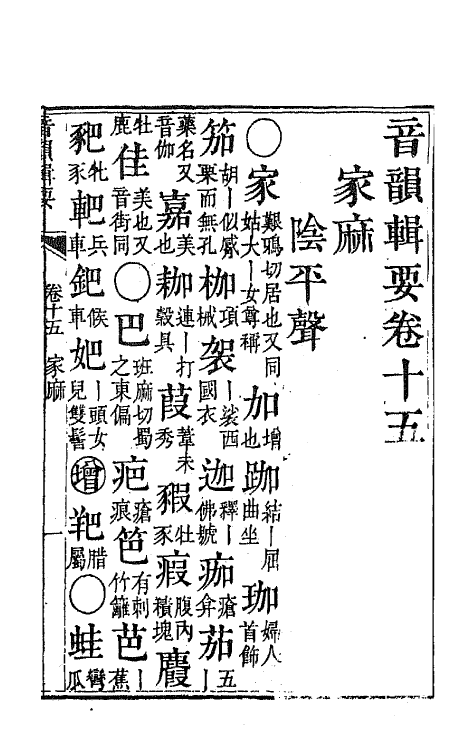 音韻輯要卷十五
家麻
陰平聲
○家艱鴉切居也又同姑大丨女尊稱加增也跏結丨屈曲坐珈婦人首飾
笳胡丨似觱栗而無孔枷項械袈丨裟西國衣迦釋丨佛號痂瘡弇茄五丨
藥名又音伽嘉美也耞連丨打穀具葭葦未秀豭牡豕瘕腹內積塊麚
牡鹿佳美也又音街同○巴班麻切蜀之東偏疤瘡痕笆有刺竹籬芭丨蕉
豝牝豕䎬兵車鈀候車妑丨頭女兒雙髻增羓腊屬○蛙彎瓜
音韻輯要
卷十五
家麻
一